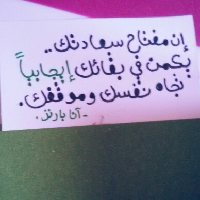 إن مفتاح سعادتك..
يكمن في بقائك إيجابياً
تجاه نفسك وموقفك.
- آن بارنز.